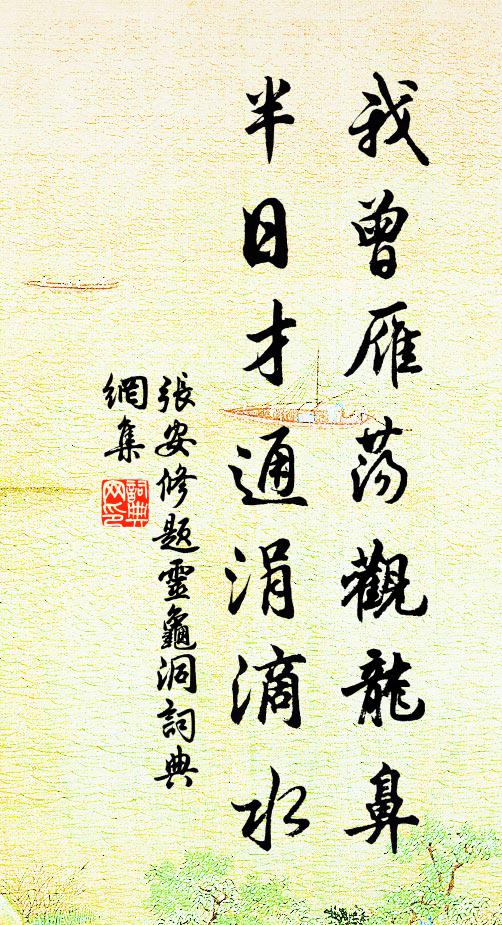 我曾雁荡觀龍鼻
半日才通涓滴水
張安修题靈龜洞詞典
網集
詞典
网印